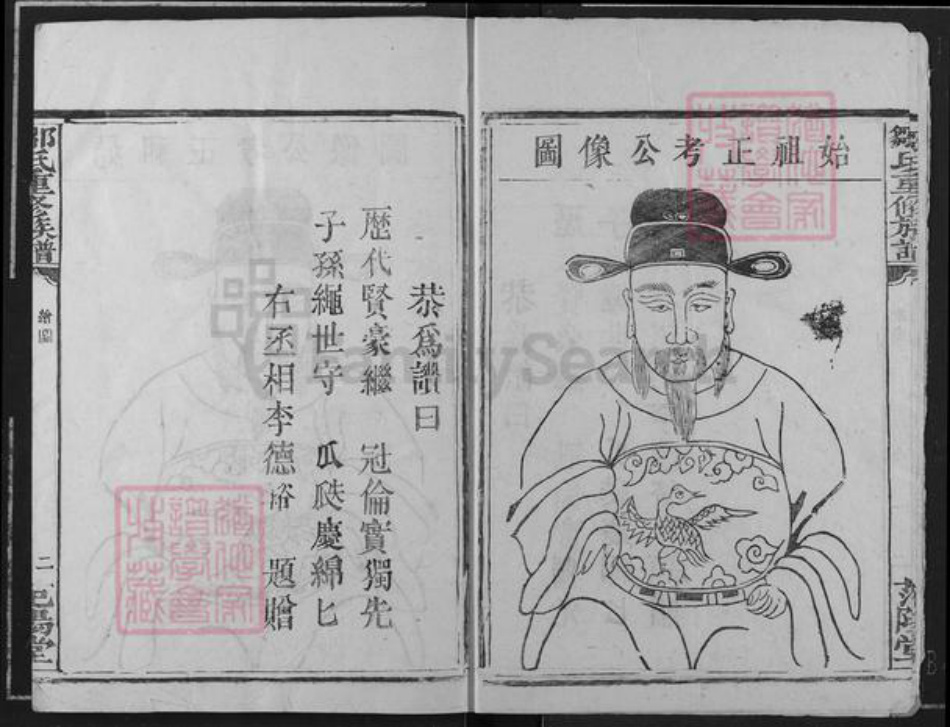 鄒氏重修族譜
始祖正考公像圖
范陽堂
恭為讚曰
歷代賢豪繼 冠倫實獨先
子孫繩世守 瓜瓞慶綿匕
右丞相李德裕 題贈
鄒氏重修族譜
繪圖
二
范陽堂
FamilySearch